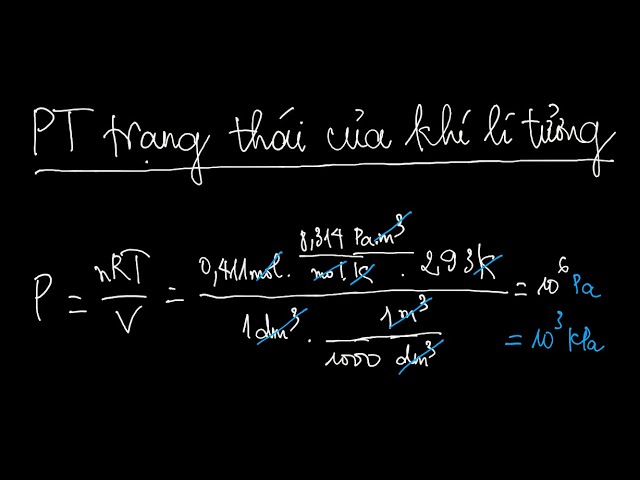 PT trạng thái của khí lí tưởng
P = nRT/V = (0,411mol . 8,314 Pa.m³/mol.K . 293K)/(1dm³ . 1m³/1000 dm³) = 10⁶ Pa
= 10³ kPa